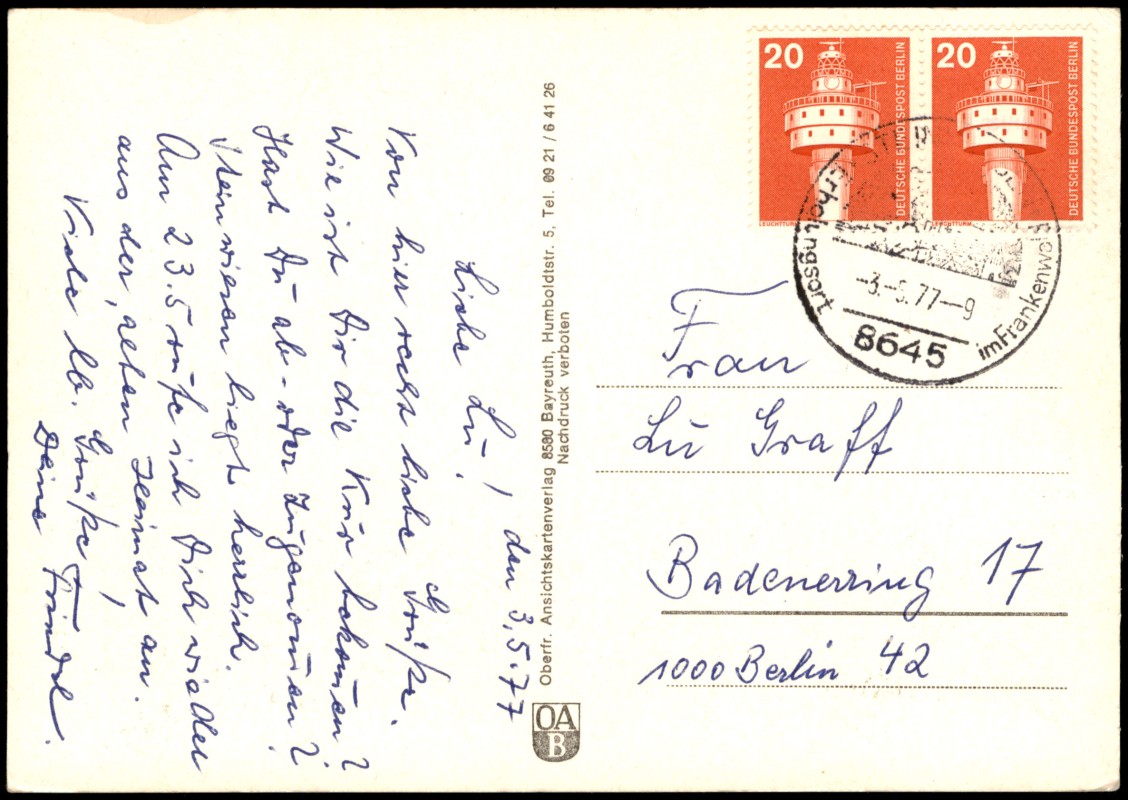 Liebe Lu! , den 3.5.77
Von hier recht liebe Grüße.
Wie ist Dir die Kur bekom̄en?
Hast Du ab- oder zugenom̄en?
Steinwiesen liegt herrlich.
Am 23.5 rufe ich Dich wieder
aus der, alten Heimat an.
Viele lb. Grüße,
Deine
Oberfr. Ansichtskartenverlag 8580 Bayreuth, Humboldtstr. 5, Tel. 09 21 / 6 41 26
Nachdruck verboten
OA
B
20
DEUTSCHE BUNDESPOST BERLIN
LEUCHTTURM
20
DEUTSCHE BUNDESPOST BERLIN
LEUCHTTURM
Erholungsort
im Frankenwald
-3.-5.77-9
8645
Frau
Lu Graff
Badenerring 17
1000 Berlin 42